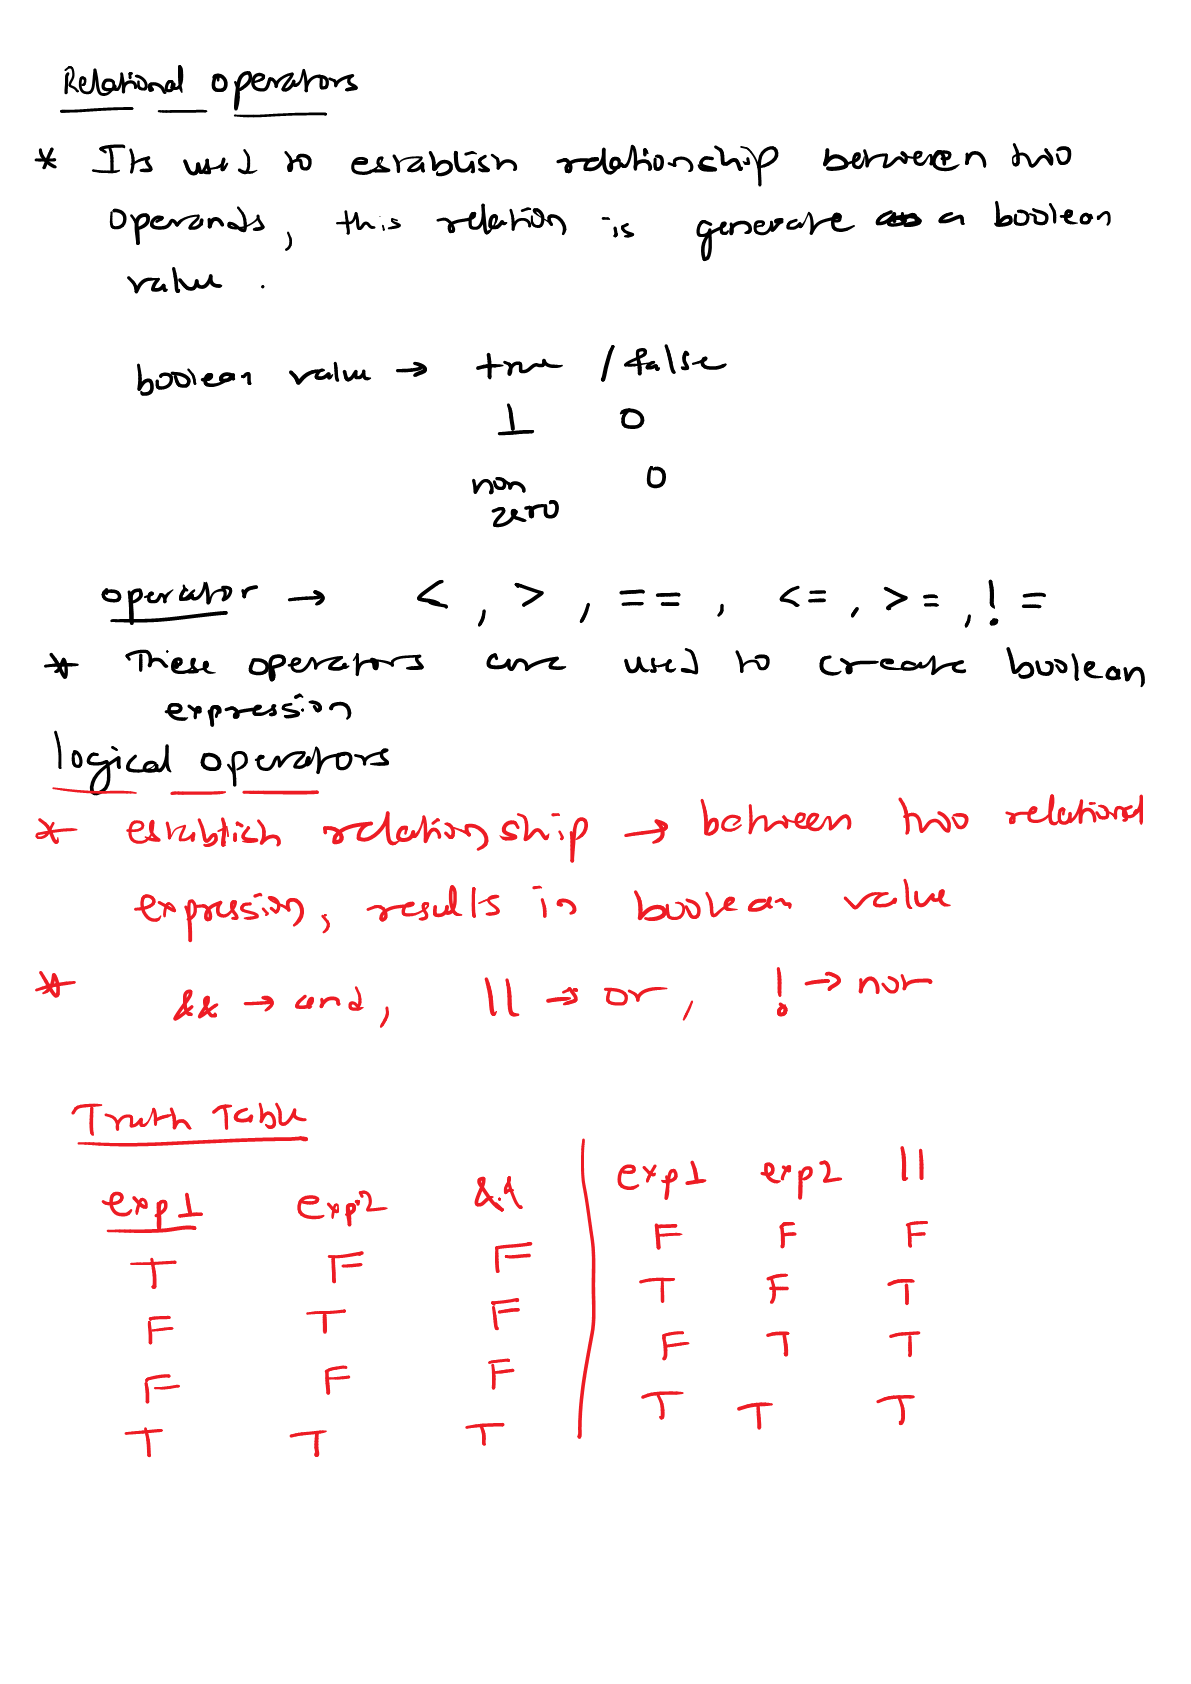 Relational operators
* Its used to establish relationship between two
operands, this relation is generate as a boolean
value .
boolean value → true / false
1 0
non 0
zero
operator → < , > , == , <= , >= , ! =
* These operators are used to create boolean
expression
logical operators
* establish relationship → between two relational
expression, results in boolean value
* && → and, || → or, ! → not
Truth Table
exp1 exp2 && exp1 exp2 ||
T F F F F F
F T F T F T
F F F F T T
T T T T T T